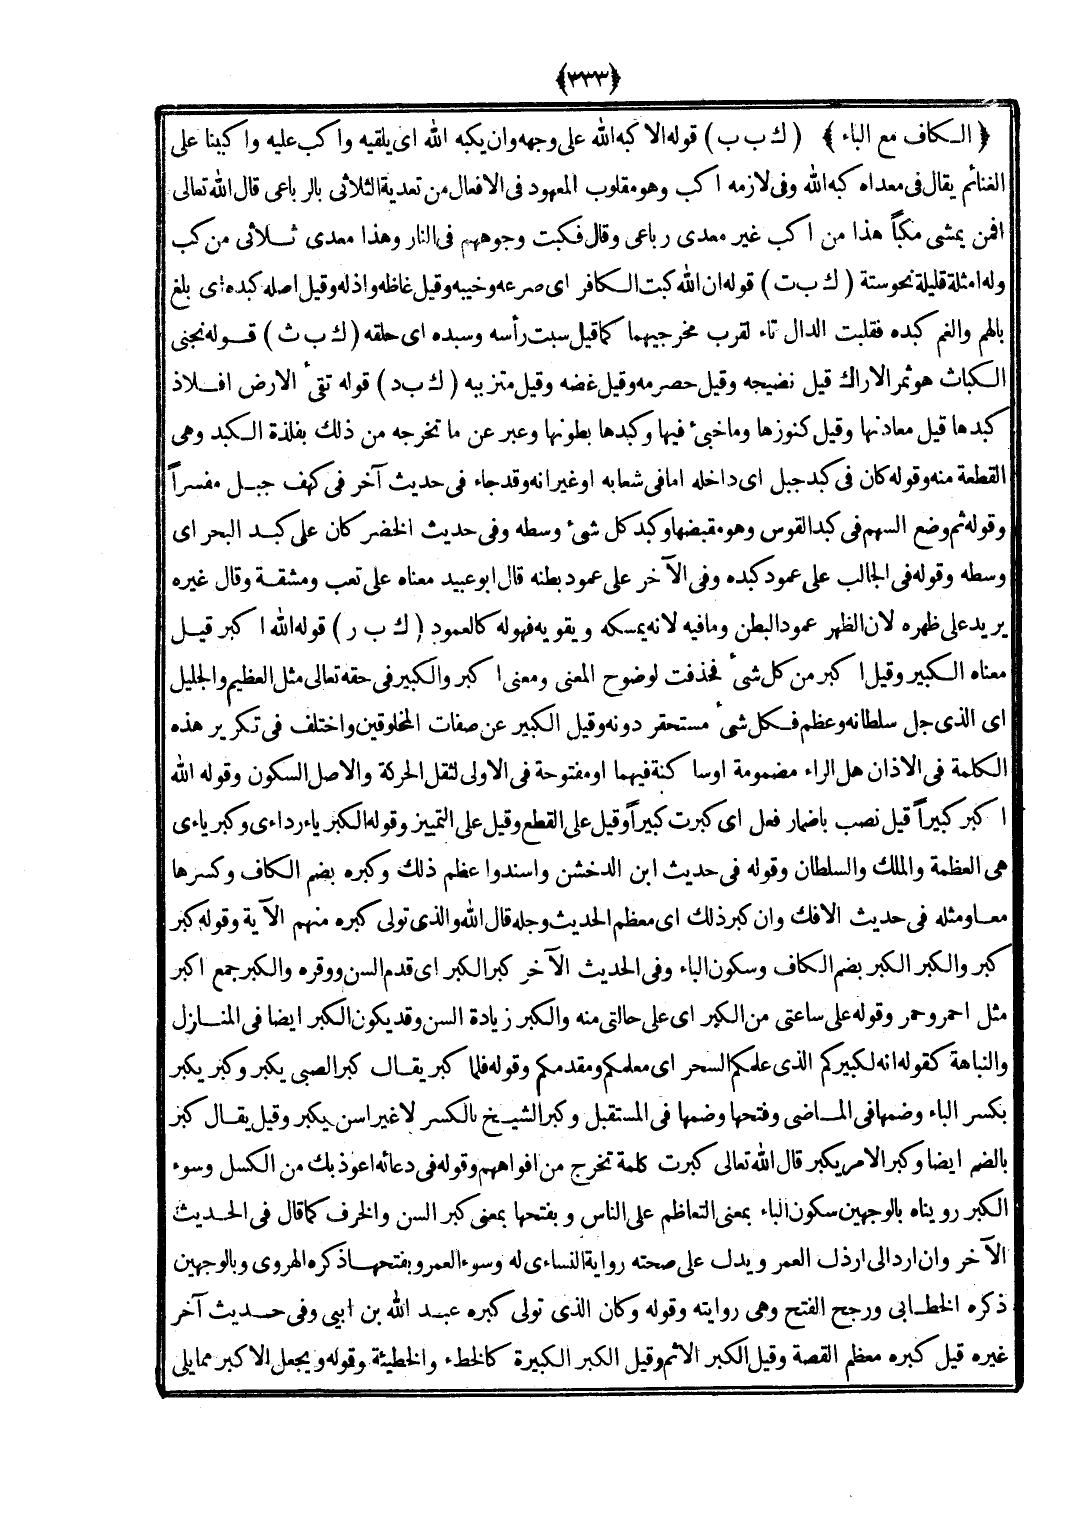 ﴿٣٣٣﴾
﴿ الكاف مع الباء ﴾ ( ك ب ب ) قوله الا كبه الله على وجهه وان يكبه الله اى يلقيه واكب عليه واكببنا على
الغنائم يقال فى معداه كبه الله وفى لازمه اكب وهو مقلوب المعهود فى الافعال من تعدية الثلاثى بالرباعى قال الله تعالى
افمن يمشى مكباً هذا من اكب غير معدى رباعى وقال فكبت وجوههم فى النار وهذا معدى ثلاثى من كب
وله امثلة قليلة نحو ستة ( ك ب ت ) قوله ان الله كبت الكافر اى صرعه وخيبه وقيل غاظه واذله وقيل اصله كبده اى بلغ
بالهم والغم كبده فقلبت الدال تاء لقرب مخرجيهما كما قيل سبت رأسه وسبده اى حلقه ( ك ب ث ) قوله نجنى
الكباث هو ثمر الاراك قيل نضيجه وقيل حصرمه وقيل غضه وقيل متزببه ( ك ب د ) قوله تقىء الارض افلاذ
كبدها قيل معادنها وقيل كنوزها وما خبىء فيها وكبدها بطونها وعبر عن ما تخرجه من ذلك بفلذة الكبد وهى
القطعة منه وقوله كان فى كبد جبل اى داخله اما فى شعابه او غيرانه وقد جاء فى حديث آخر فى كهف جبل مفسراً
وقوله ثم وضع السهم فى كبد القوس وهو مقبضها وكبد كل شىء وسطه وفى حديث الخضر كان على كبد البحر اى
وسطه وقوله فى الجالب على عمود كبده وفى الآخر على عمود بطنه قال ابو عبيد معناه على تعب ومشقة وقال غيره
يريد على ظهره لان الظهر عمود البطن وما فيه لانه يمسكه ويقويه فهو له كالعمود ( ك ب ر ) قوله الله اكبر قيل
معناه الكبير وقيل اكبر من كل شىء فحذفت لوضوح المعنى ومعنى اكبر والكبير فى حقه تعالى مثل العظيم والجليل
اى الذى جل سلطانه وعظم فكل شىء مستحقر دونه وقيل الكبير عن صفات المخلوقين واختلف فى تكرير هذه
الكلمة فى الاذان هل الراء مضمومة او ساكنة فيهما او مفتوحة فى الاولى لثقل الحركة والاصل السكون وقوله الله
اكبر كبيراً قيل نصب باضمار فعل اى كبرت كبيراً وقيل على القطع وقيل على التمييز وقوله الكبرياء رداءى وكبرياءى
هى العظمة والملك والسلطان وقوله فى حديث ابن الدخشن واسندوا عظم ذلك وكبره بضم الكاف وكسرها
معا ومثله فى حديث الافك وان كبر ذلك اى معظم الحديث وجله قال الله والذى تولى كبره منهم الآية وقوله كبر
كبر والكبر الكبر بضم الكاف وسكون الباء وفى الحديث الآخر كبر الكبر اى قدم السن ووقره والكبر جمع اكبر
مثل احمر وحمر وقوله على ساعتى من الكبر اى على حالتى منه والكبر زيادة السن وقد يكون الكبر ايضا فى المنازل
والنباهة كقوله انه لكبيركم الذى علمكم السحر اى معلمكم ومقدمكم وقوله فلما كبر يقال كبر الصبى يكبر وكبر يكبر
بكسر الباء وضمها فى الماضى وفتحها وضمها فى المستقبل وكبر الشيخ بالكسر لا غير اسن يكبر وقيل يقال كبر
بالضم ايضا وكبر الامر يكبر قال الله تعالى كبرت كلمة تخرج من افواههم وقوله فى دعائه اعوذ بك من الكسل وسوء
الكبر رويناه بالوجهين سكون الباء بمعنى التعاظم على الناس وبفتحها بمعنى كبر السن والخرف كما قال فى الحديث
الآخر وان ارد الى ارذل العمر ويدل على صحته رواية النساءى له وسوء العمر وبفتحها ذكره الهروى وبالوجهين
ذكره الخطابى ورجح الفتح وهى روايته وقوله وكان الذى تولى كبره عبد الله بن ابيى وفى حديث آخر
غيره قيل كبره معظم القصة وقيل الكبر الاثم وقيل الكبر الكبيرة كالخطء والخطيئة وقوله ويجعل الاكبر مما يلى